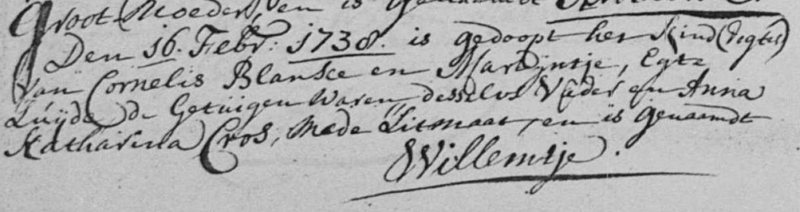 Groot Moeder, en is genaamdt
Den 16. Febr: 1738. is gedoopt het Kind (Egte)
van Cornelis Blansce en Martijntje, Egte
Luijde de Getuigen Waren desselvs Vader en Anna
Katharina Cros, Mede Litmaat, en is genaamdt
Willemtje.